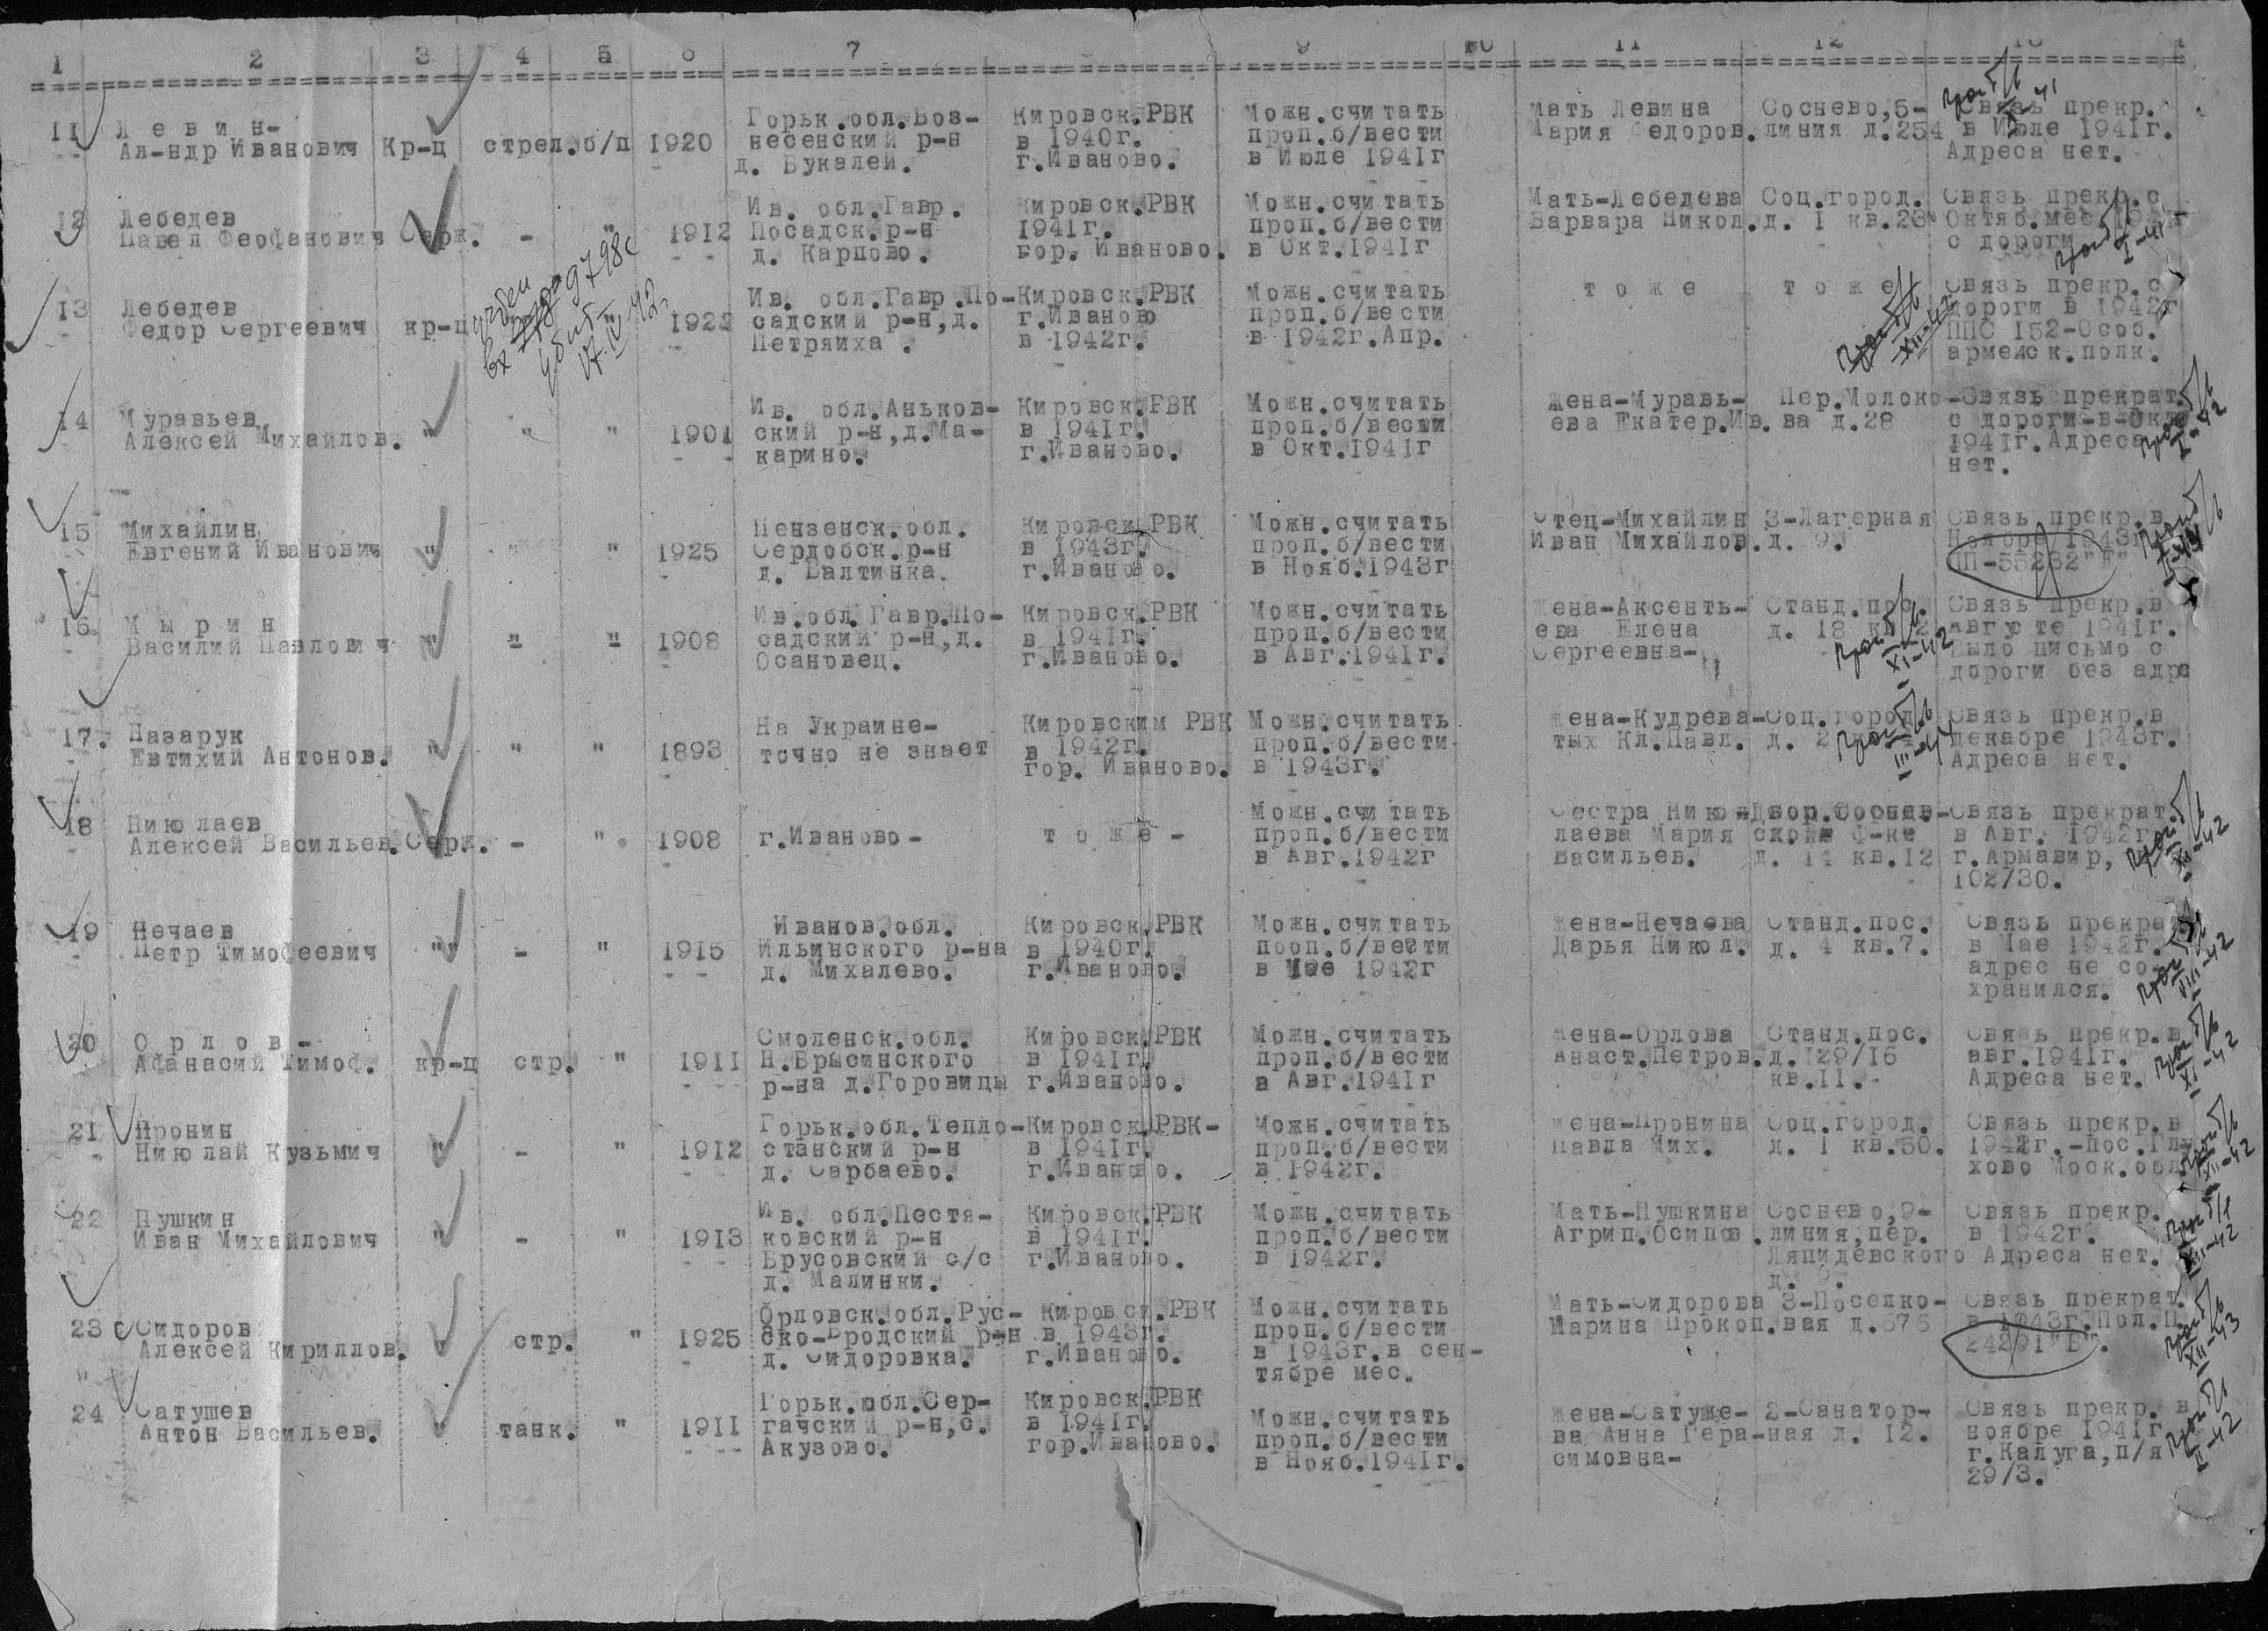 1 2 3 4 5 6 7 9 10 11 12 13
11 Л е в и н- Ал-ндр Иванович Кр-ц стрел. б/п 1920
Горьк.обл.Воз-
несенский р-н
д. Букалей.
Кировск.РВК
в 1940г.
г.Иваново.
Можн.считать
проп.б/вести
в Июле 1941г
Мать Левина
Мария Федоров.
Соснево,5-
линия д.254
Связь прекр.
в Июле 1941г.
Адреса нет.
12 Лебедев
Павел Феофанович Серж. - " 1912
Ив. обл.Гавр.
Посадск.р-н
д. Карпово.
Кировск.РВК
1941г.
гор. Иваново.
Можн.считать
проп.б/вести
в Окт.1941г
Мать-Лебедева
Варвара Никол.
Соц.город.
д. 1 кв.28
Связь прекр.с
Октяб.мес.
с дороги
13 Лебедев
Федор Сергеевич кр-ц 1922
Ив. обл.Гавр.По-
садский р-н,д.
Петряиха .
Кировск.РВК
г.Иваново
в 1942г.
Можн.считать
проп.б/вести
в 1942г.Апр.
т о ж е
т о ж е
Связь прекр.с
дороги в 1942г
ППС 152-Особ.
армейск.полк.
убит
17.IV-42
14 Муравьев
Алексей Михайлов. " " " 1901
Ив. обл.Аньков-
ский р-н,д.Ма-
карино.
Кировск.РВК
в 1941г.
г.Иваново.
Можн.считать
проп.б/вести
в Окт.1941г
Жена-Муравь-
ева Екатер.Ив.
Пер.Молоко-
ва д.28
Связь прекрат.
с дороги-в-Окт
1941г.Адреса
нет.
15 Михайлин
Евгений Иванович " " " 1925
Пензенск.обл.
Сердобск.р-н
д. Балтинка.
Кировск.РВК
в 1943г.
г.Иваново.
Можн.считать
проп.б/вести
в Нояб.1943г
Отец-Михайлин
Иван Михайлов.
3-Лагерная
д. 9.
Связь прекр.в
Ноябре 1943г
ПП-55262
16. М ы р и н
Василий Павлович " " " 1908
Ив.обл.Гавр.По-
садский р-н,д.
Осановец.
Кировск.РВК
в 1941г.
г.Иваново.
Можн.считать
проп.б/вести
в Авг.1941г.
Жена-Аксенть-
ева Елена
Сергеевна-
Станд.пос.
д. 18 кв.
Связь прекр.в
Августе 1941г.
Было письмо с
дороги без адре
17. Назарук
Евтихий Антонов. " " " 1893
На Украине-
точно не знает
Кировским РВК
в 1942г.
гор. Иваново.
Можн.считать
проп.б/вести
в 1943г.
Жена-Кудрева-
тых Кл.Павл.
Соц.город.
д. 2
Связь прекр.в
декабре 1943г.
Адреса нет.
18 Николаев
Алексей Васильев. Серж. - " 1908
г.Иваново-
т о ж е -
Можн.считать
проп.б/вести
в Авг.1942г
Сестра Нико-
лаева Мария
Васильев.
Двор.Соснев-
ской ф-ке
д. 14 кв.12
Связь прекрат.
в Авг. 1942г
г.Армавир,
102/30.
19 Нечаев
Петр Тимофеевич "" - " 1915
Иванов.обл.
Ильинского р-на
д. Михалево.
Кировск.РВК
в 1940г.
г.Иваново.
Можн.считать
проп.б/вести
в Мае 1942г
Жена-Нечаева
Дарья Никол.
Станд.пос.
д. 4 кв.7.
Связь прекрат
в Мае 1942г.
адрес не со-
хранился.
20 О р л о в -
Афанасий Тимоф. кр-ц стр. " 1911
Смоленск.обл.
Н.Брысинского
р-на д.Горовицы
Кировск.РВК
в 1941г.
г.Иваново.
Можн.считать
проп.б/вести
в Авг.1941г
Жена-Орлова
Анаст.Петров.
Станд.пос.
д.129/16
кв.11.-
Связь прекр.в
авг.1941г.
Адреса нет.
21 Пронин
Николай Кузьмич " - " 1912
Горьк.обл.Тепло-
станский р-н
д. Сарбаево.
Кировск.РВК-
в 1941г.
г.Иваново.
Можн.считать
проп.б/вести
в 1942г.
Жена-Пронина
Павла Мих.
Соц.город.
д. 1 кв.50.
Связь прекр.в
1942г.-Пос.Глу
хово Моск.обл
22 Пушкин
Иван Михайлович " - " 1913
Ив. обл.Пестя-
ковский р-н
Брусовский с/с
д. Малинки.
Кировск.РВК
в 1941г.
г.Иваново.
Можн.считать
проп.б/вести
в 1942г.
Мать-Пушкина
Агрип.Осипов.
Соснево,9-
линия,пер.
Ляпидевского
Связь прекр.
в 1942г.
Адреса нет.
23 Сидоров
Алексей Кириллов. " стр. " 1925
Орловск.обл.Рус-
ско-Бродский р-н
д. Сидоровка.
Кировск.РВК
в 1943г.
г.Иваново.
Можн.считать
проп.б/вести
в 1943г.в сен-
тябре мес.
Мать-Сидорова
Марина Прокоп.
3-Поселко-
вая д.676
Связь прекрат.
в 1943г.Пол.П.
24291"Б".
24 Сатушев
Антон Васильев. " танк. " 1911
Горьк.обл.Сер-
гачский р-н,с.
Акузово.
Кировск.РВК
в 1941г.
гор.Иваново.
Можн.считать
проп.б/вести
в Нояб.1941г.
Жена-Сатуше-
ва Анна Гера-
симовна-
2-Санатор-
ная д. 12.
Связь прекр. в
ноябре 1941г.
г.Калуга,п/я
29/3.